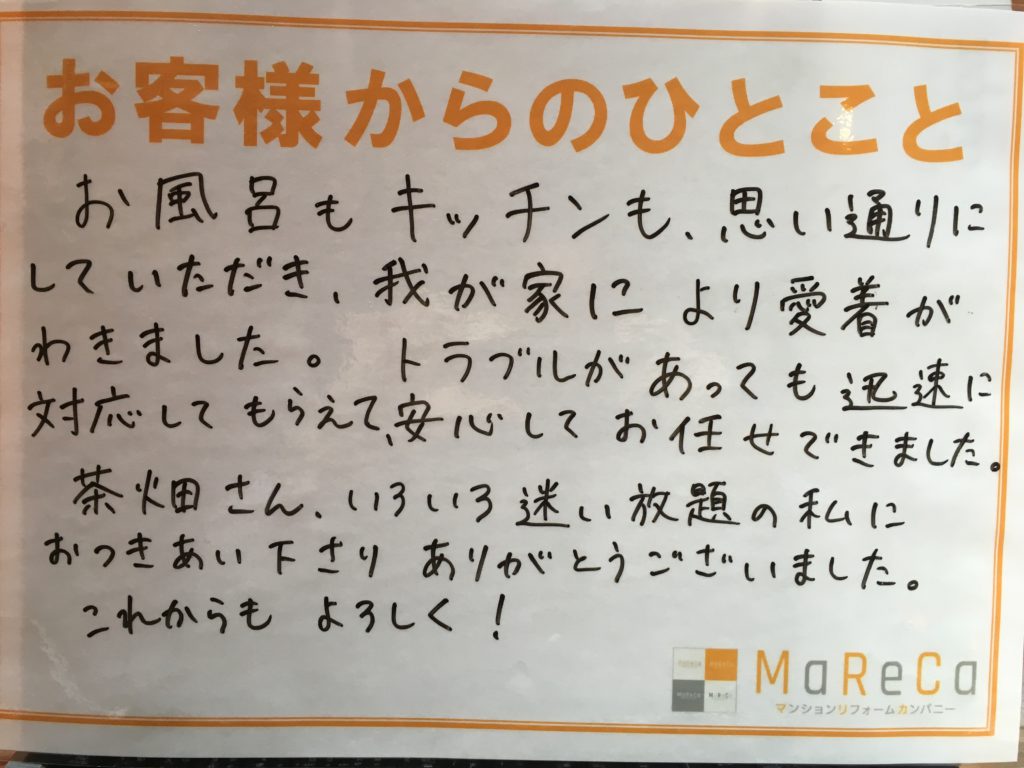 お客様からのひとこと
お風呂もキッチンも、思い通りに
していただき、我が家により愛着が
わきました。トラブルがあっても迅速に
対応してもらえて、安心してお任せできました。
茶畑さん、いろいろ迷い放題の私に
おつきあい下さりありがとうございました。
これからもよろしく!
MaReCa
マンションリフォームカンパニー